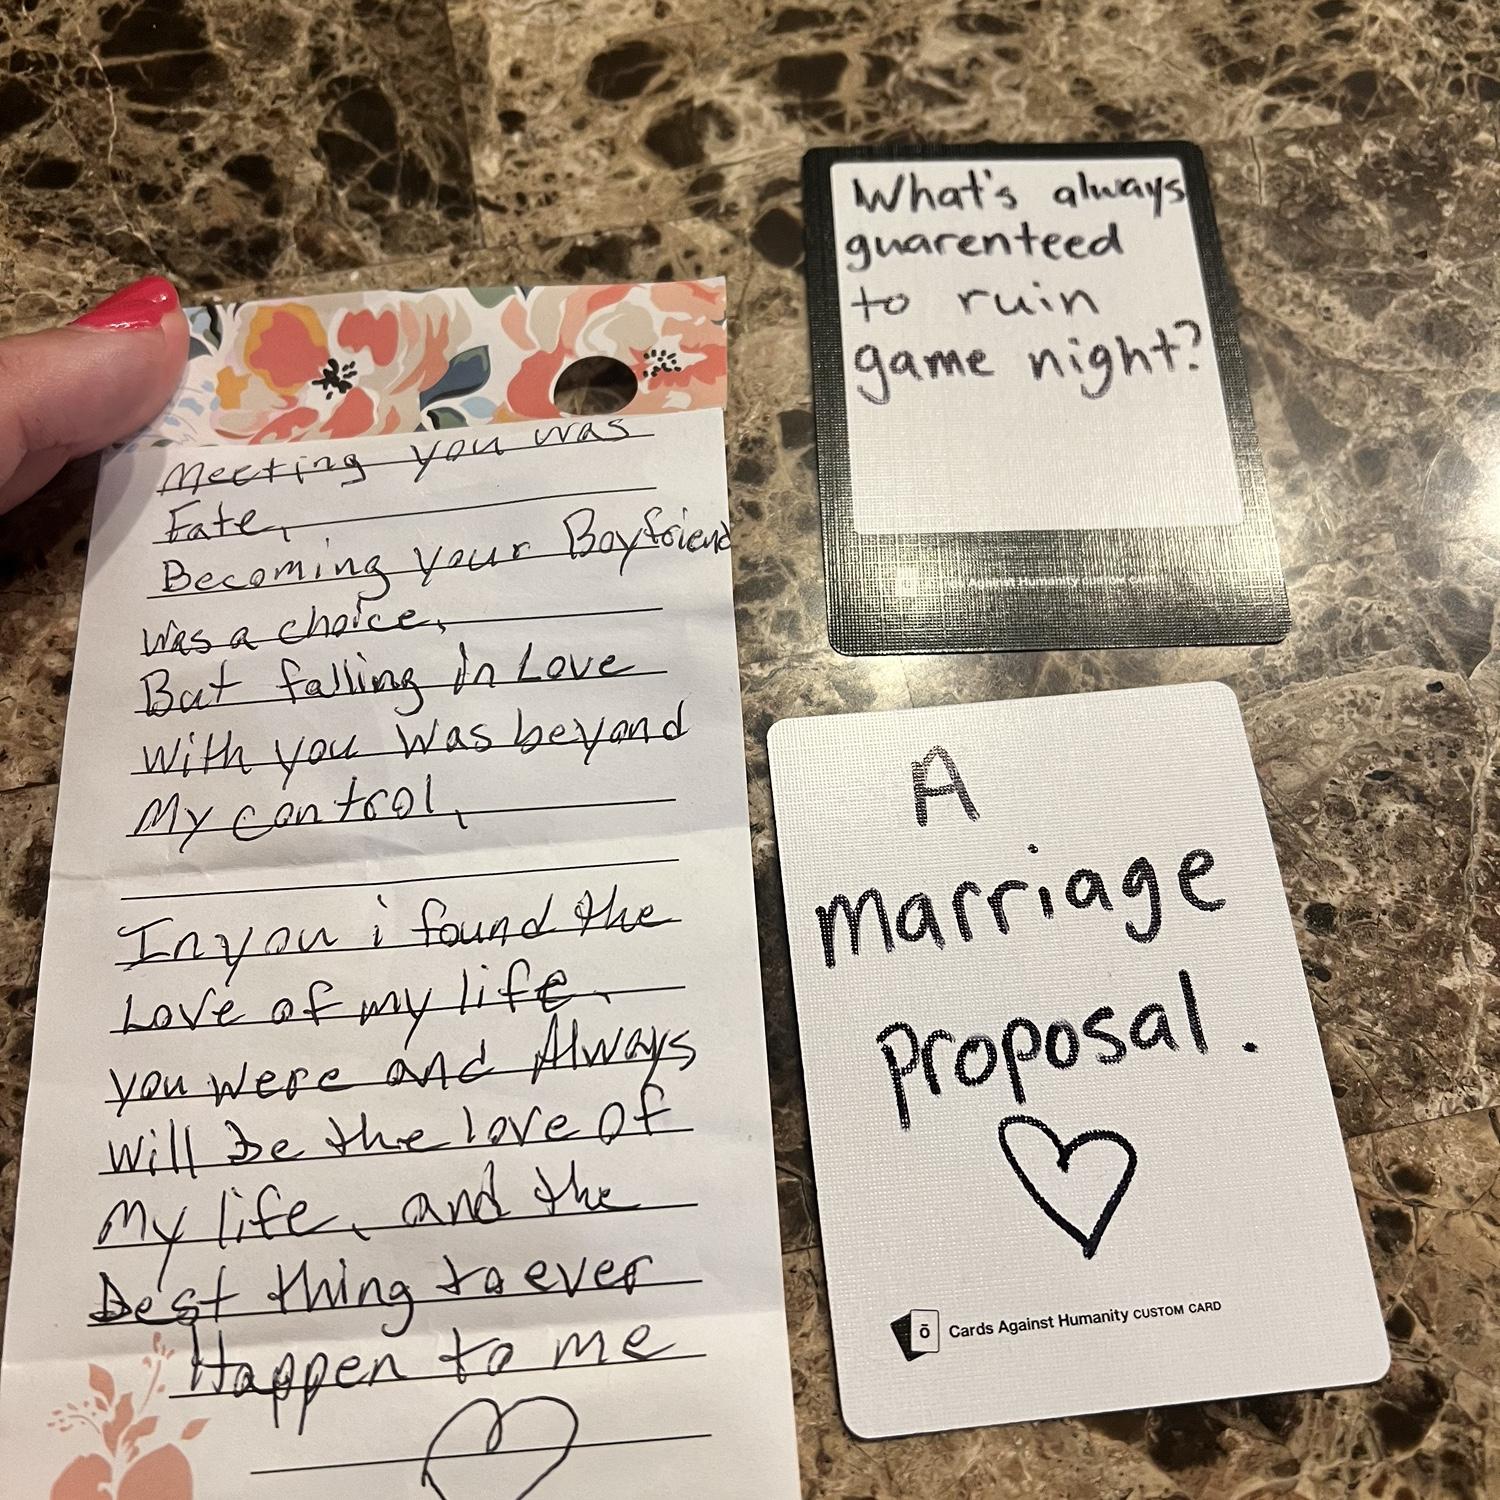 Meeting you was
Fate,
Becoming your Boyfriend
was a choice,
But falling in Love
With you was beyond
My control,
In you i found the
Love of my life,
you were and Always
will be the love of
My life, and the
Best thing to ever
Happen to me
What's always
guarenteed
to ruin
game night?
Cards Against Humanity CUSTOM CARD
A
marriage
proposal.
Cards Against Humanity CUSTOM CARD